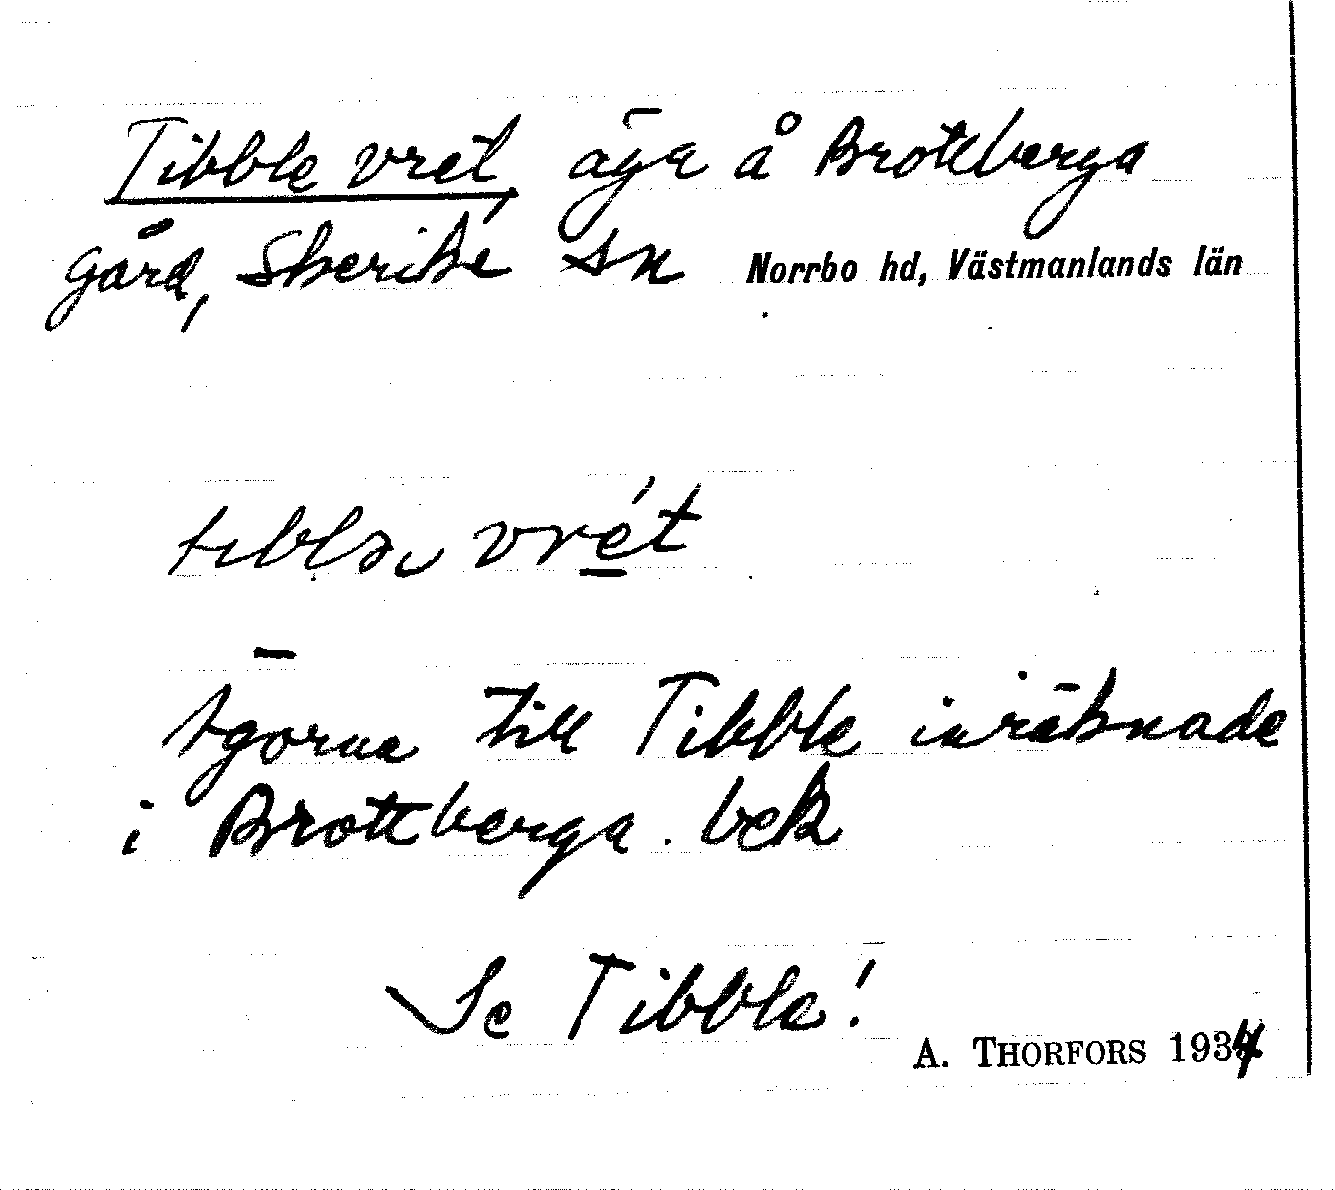 Tibble vret, äga å Brottberga
gård, Skerike sn Norrbo hd, Västmanlands län
tɩblə vré̱t
Ägorna till Tibble inräknade
i Brottberga. bek
Se Tibble!
A. THORFORS 1934